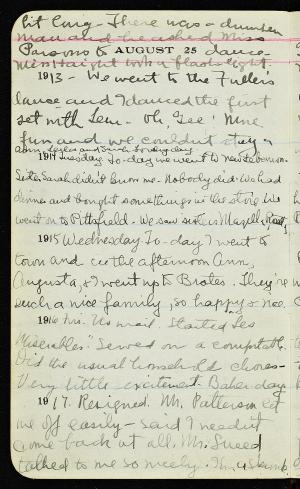 bit Curg - There was a drunken
man and he asked Miss
Parsons to AUGUST 25 dance
Miss Haight took a flash-light.
1913 - We went to the Fuller's
dance and I danced the first
set with Lem. Oh Gee! Mine
fun and we couldn't stay
1914 Tuesday To-day we went to New Lebanon.
Sister Sarah didn't know me - Nobody did. We had
dinner and bought some things in the store. We
went on to Pittsfield. We saw sisters
1915 Wednesday To-day I went to
town and in the afternoon Ann,
Augusta, & I went up to Brotes. They're
such a nice family, so happy & nice
1916 Fri. No mail. Started "Les
Miserables." Sewed on a comfortable.
Did the usual household chores -
Very little excitement. Baker day
1917. Resigned. Mr. Patterson let
me off easily - said I needn't
come back at all. Mr. Sneed
talked to me so nicely.